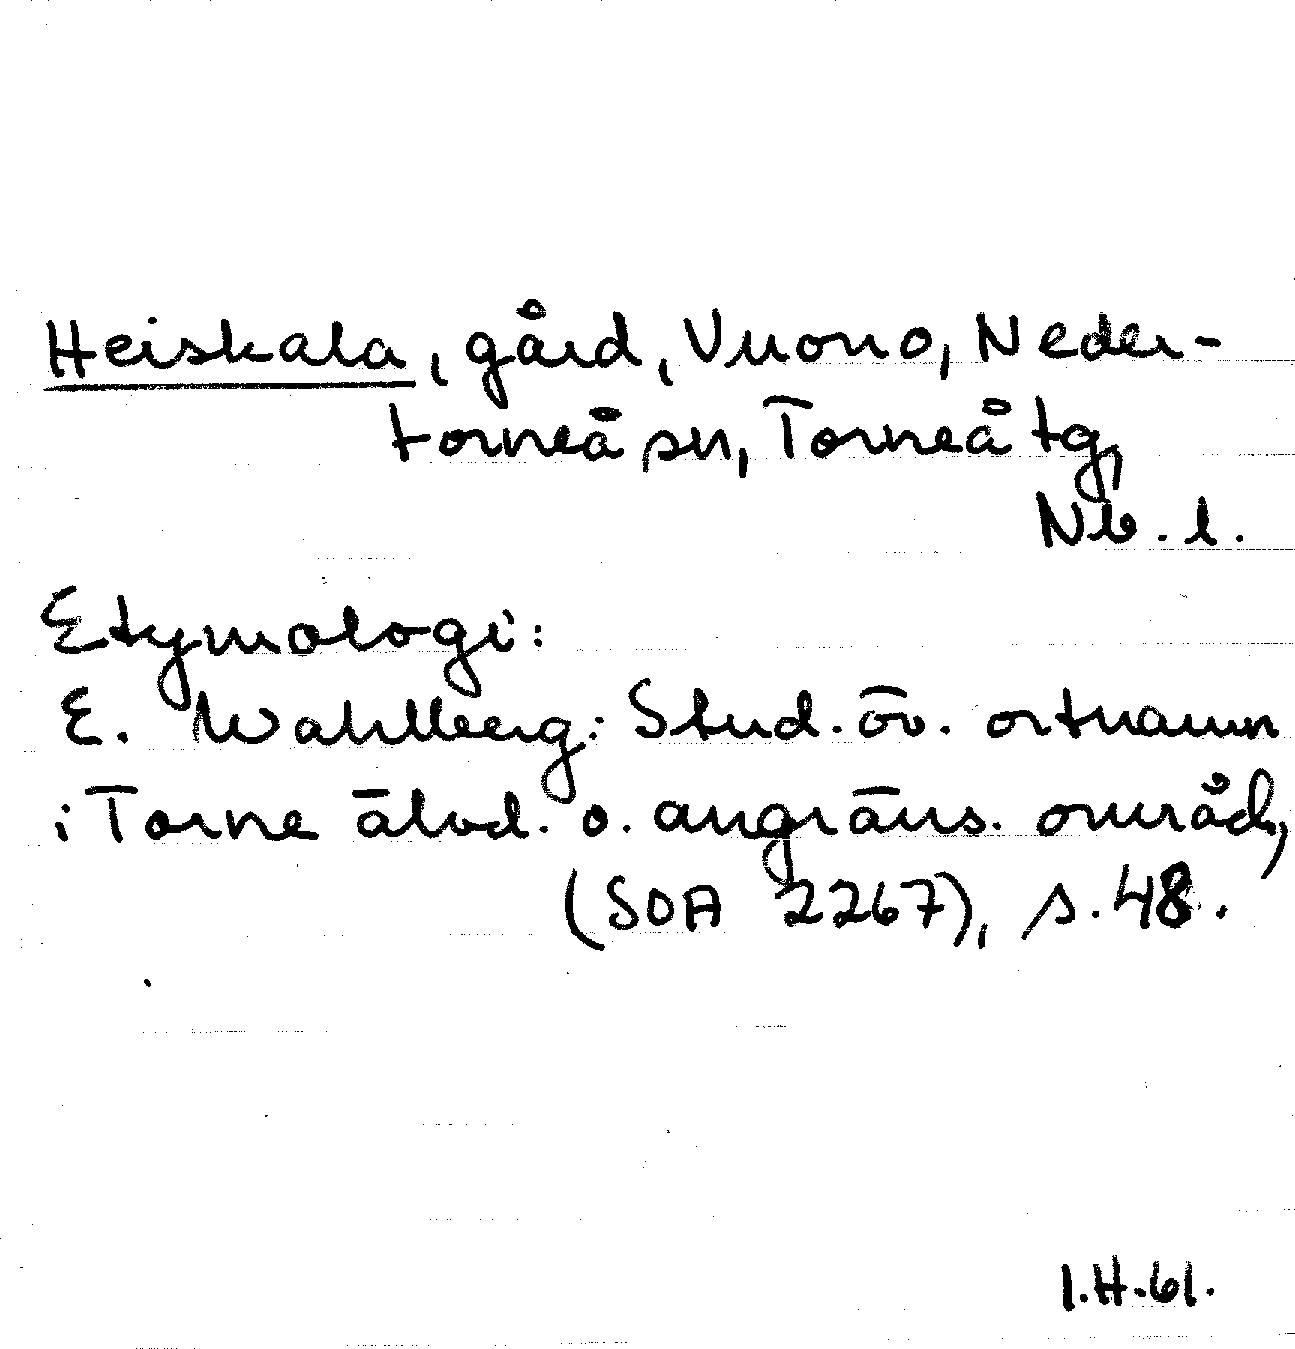 Heiskala, gård, Vuono, Neder-
torneå sn, Torneå tg,
Nb. l.
Etymologi:
E. Wahlberg: Stud. öv. ortnamn
i Torne älvd. o. angräns. områd,
(SOA 2267), s. 48.
I.H.61.